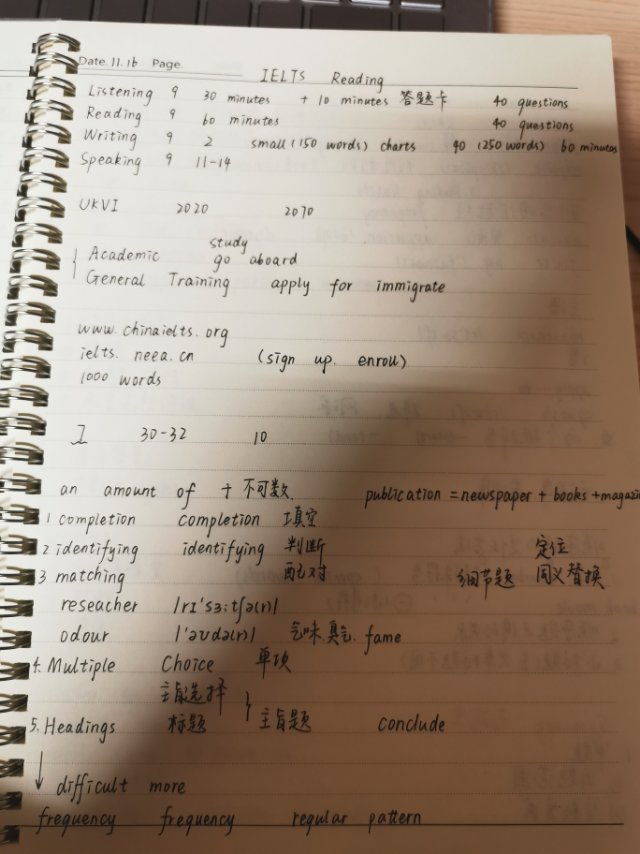 Date. 11.16 Page.
IELTS Reading
Listening 9 30 minutes + 10 minutes 答题卡 40 questions
Reading 9 60 minutes 40 questions
Writing 9 2 small (150 words) charts 40 (250 words) 60 minutes
Speaking 9 11-14
UKVI 2020 2070
study
Academic go aboard
General Training apply for immigrate
www.chinaielts.org
ielts.neea.cn (sign up. enroll)
1000 words
30-32 10
an amount of + 不可数 publication = newspaper + books + magazin
1 completion completion 填空
2 identifying identifying 判断 定位
3 matching 配对 细节题 同义替换
reseacher /rɪ'sɜ:tʃə(r)/
odour /'əʊdə(r)/ 气味.臭气. fame
4. Multiple Choice 单项
主旨选择
5. Headings 标题 主旨题 conclude
difficult more
frequency frequency regular pattern